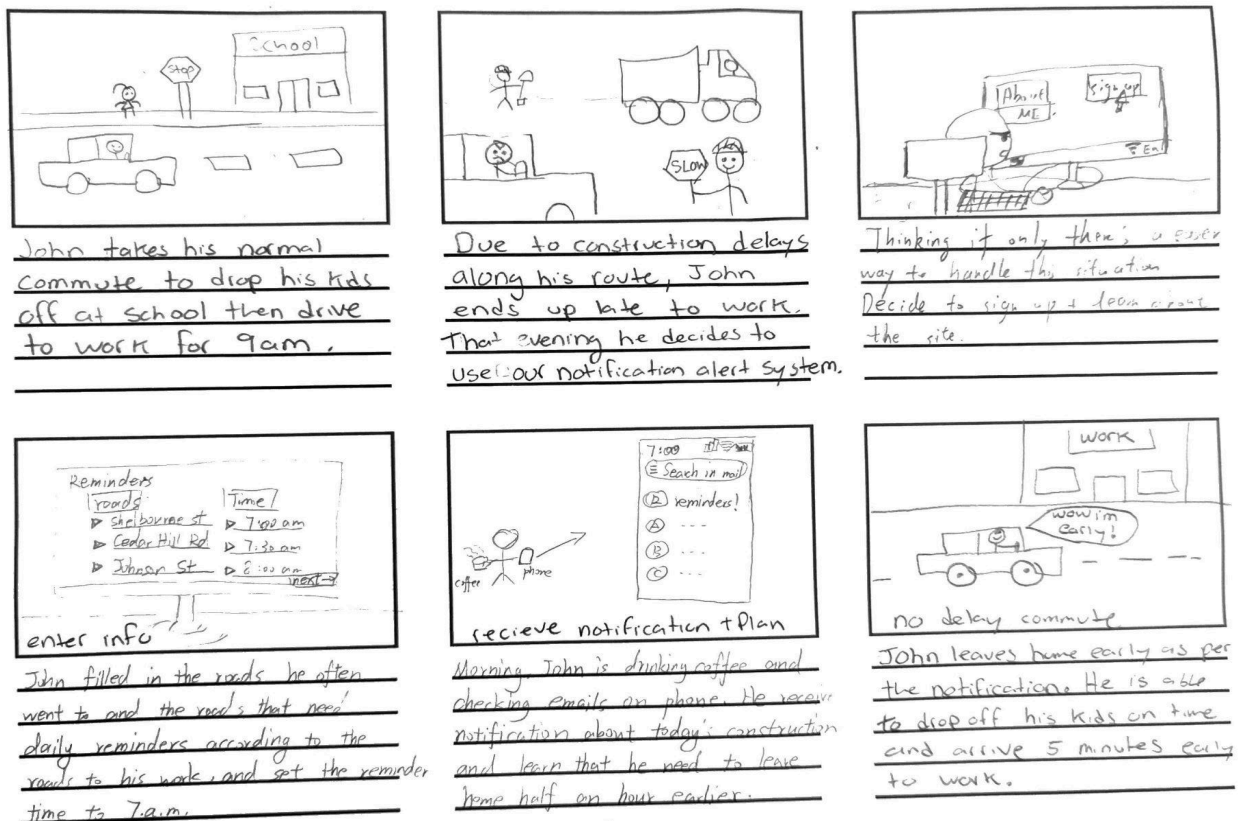 School
Stop
John takes his normal
commute to drop his kids
off at school then drive
to work for 9am.
SLOW
Due to construction delays
along his route, John
ends up late to work.
That evening he decides to
use our notification alert system.
About
ME
sign up
Thinking if only there's a easer
way to handle this situation
Decide to sign up + learn about
the site.
Reminders
roads
Time
▷ Shelbourne st ▷ 7:00 am
▷ Cedar Hill Rd ▷ 7:30 am
▷ Johnson St ▷ 8:00 am
next→
enter info
John filled in the roads he often
went to and the roads that need
daily reminders according to the
roads to his work, and set the reminder
time to 7.a.m.
7:00
Search in mail
reminders!
A ...
B ...
C ...
coffee
phone
recieve notification + Plan
Morning, John is drinking coffee and
checking emails on phone. He receive
notification about today's construction
and learn that he need to leave
home half an hour earlier.
work
wow im
early!
no delay commute
John leaves home early as per
the notification. He is able
to drop off his kids on time
and arrive 5 minutes early
to work.